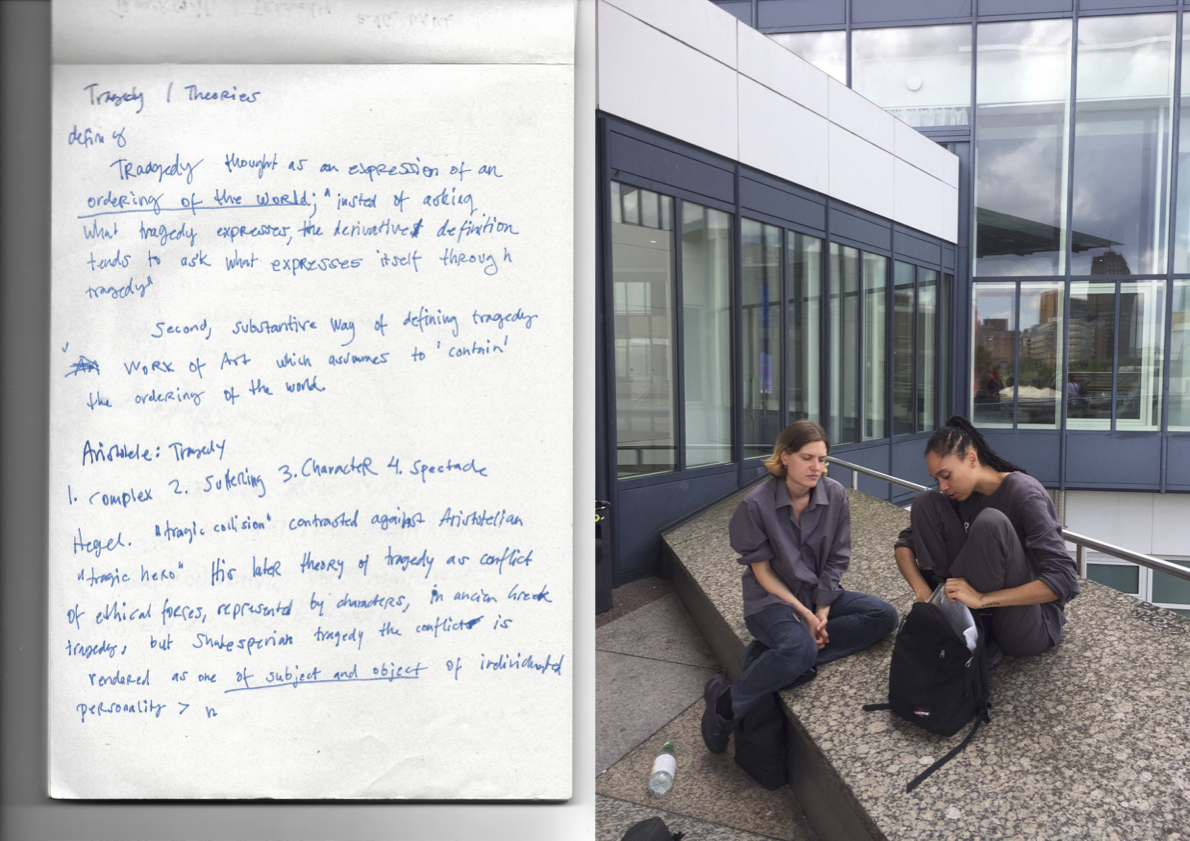 Tragedy / Theories
defin of
Tradgedy thought as an expression of an
ordering of the world; "insted of asking
what tragedy expresses, the derivative definition
tends to ask what expresses itself through
tragedy"
Second, substantive way of defining tragedy
Work of Art which assumes to 'contain'
the ordering of the world.
Aristotele: Tragedy
1. Complex 2. Suffering 3. Character 4. Spectacle
Hegel. "tragic collision" contrasted against Aristotelian
"tragic hero" His later theory of tragedy as conflict
of ethical forces, represented by characters, in ancien Greek
tragedy, but Shakesperian tragedy the conflict is
rendered as one of subject and object of individuated
personality >